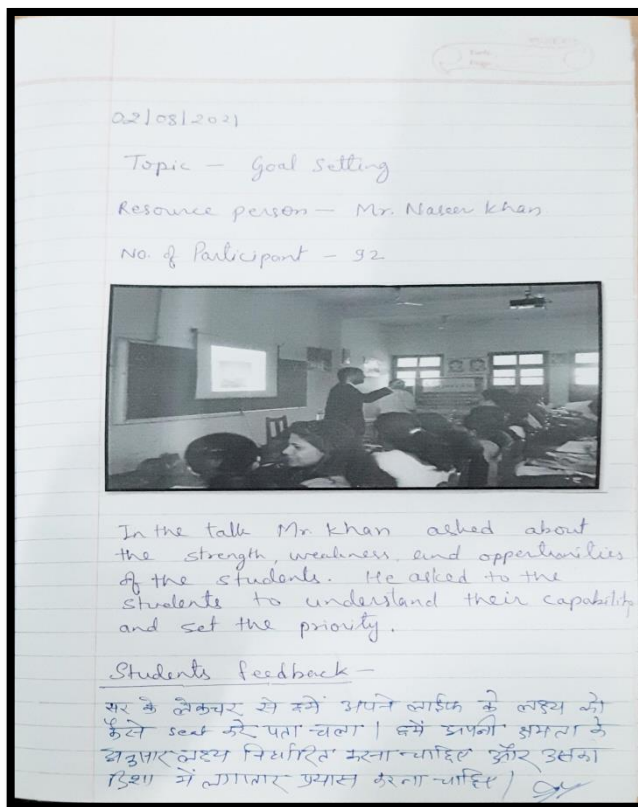 02/08/2021
Topic – Goal Setting
Resource person – Mr. Naseer Khan
No. of Participant – 92
In the talk Mr. Khan asked about
the strength, weakness, and opportunities
of the students. He asked to the
students to understand their capability
and set the priority.
Students feedback –
सर के लेकचर से हमें अपने लाईफ के लक्ष्य को
कैसे seat करे पता चला । हमें अपनी क्षमता के
अनुसार लक्ष्य निर्धारित करना चाहिए और उसका
दिशा में लगातार प्रयास करना चाहिए ।